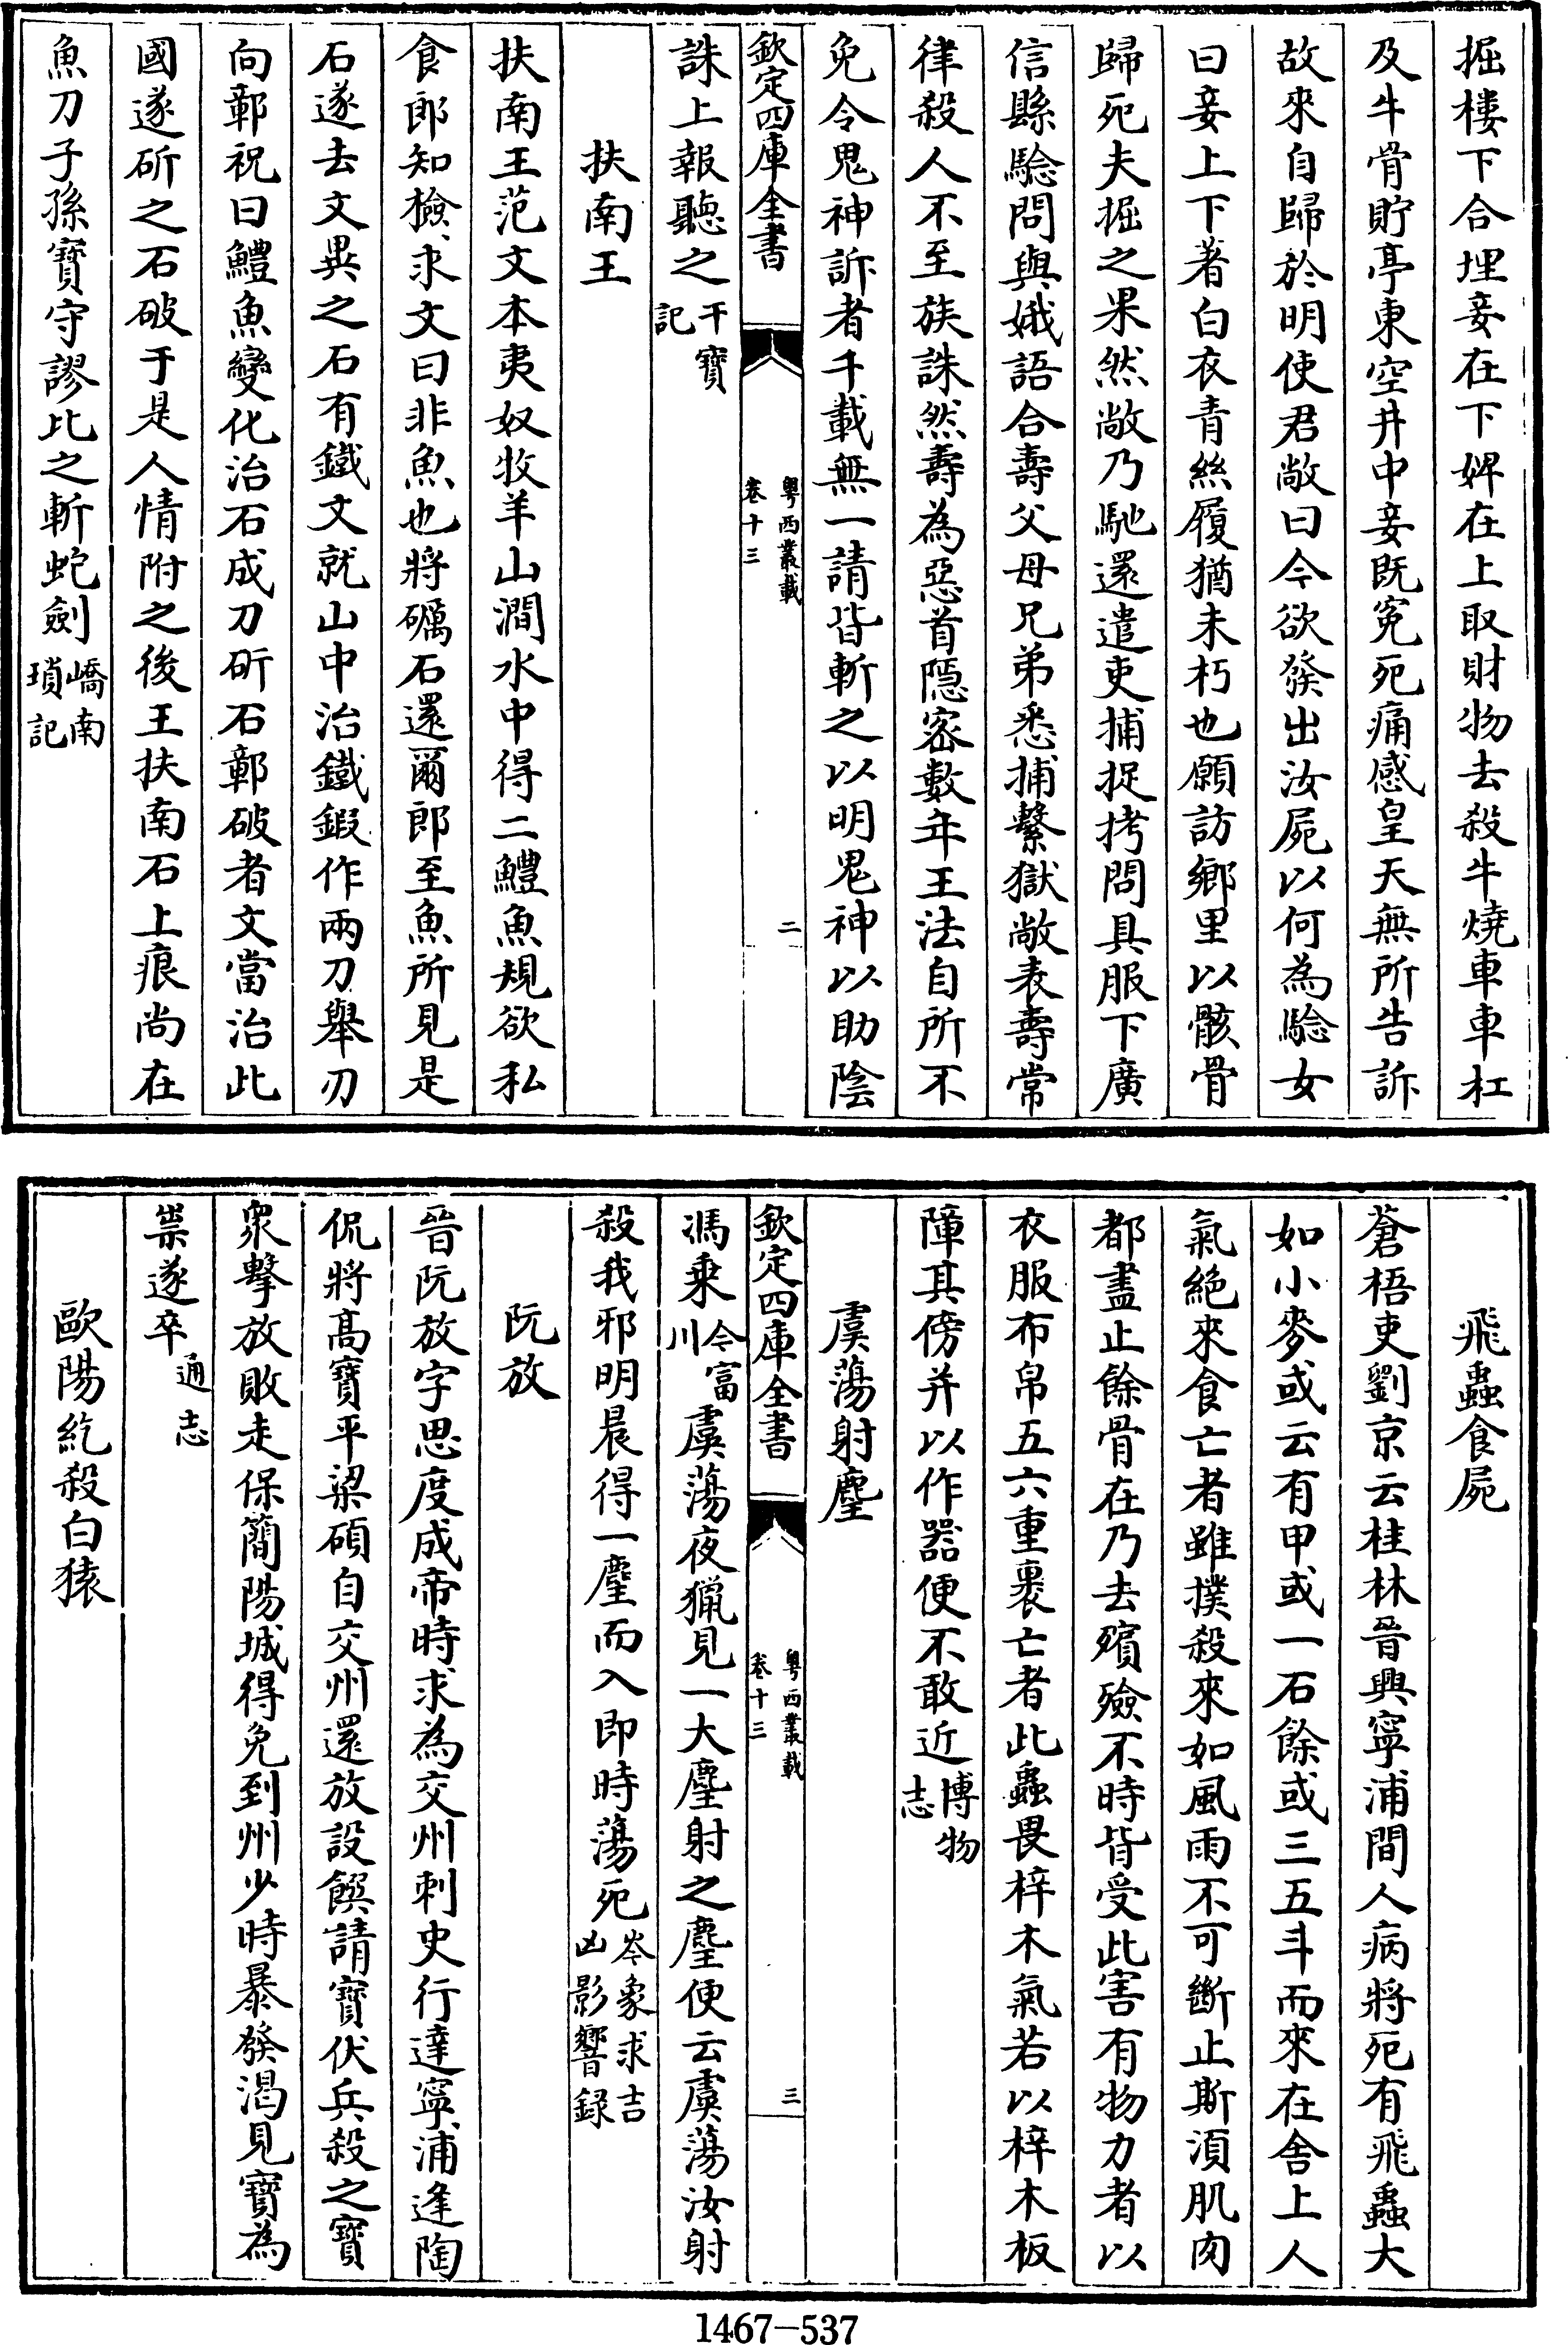 掘樓下合埋妾在下婢在上取財物去殺牛燒車車杠
及牛骨貯亭東空井中妾既冤死痛感皇天無所告訴
故來自歸於明使君敞曰今欲發出汝屍以何為驗女
曰妾上下著白衣青絲履猶未朽也願訪鄉里以骸骨
歸死夫掘之果然敞乃馳還遣吏捕捉拷問具服下廣
信縣驗問與娥語合壽父母兄弟悉捕繫獄敞表壽常
律殺人不至族誅然壽為惡首隱密數年王法自所不
免令鬼神訴者千載無一請皆斬之以明鬼神以助陰
欽定四庫全書
粤西叢載
卷十三
二
誅上報聽之干寶
記
扶南王
扶南王范文本夷奴牧羊山澗水中得二鱧魚規欲私
食郎知檢求文曰非魚也將礪石還爾郎至魚所見是
石遂去文異之石有鐵文就山中治鐵鍜作兩刀舉刃
向鄣祝曰鱧魚變化治石成刀斫石鄣破者文當治此
國遂斫之石破于是人情附之後王扶南石上痕尚在
魚刀子孫寶守謬比之斬蛇劍嶠南
瑣記
飛蟲食屍
蒼梧吏劉京云桂林晉興寧浦間人病將死有飛蟲大
如小麥或云有甲或一石餘或三五斗而來在舍上人
氣絕來食亡者雖撲殺來如風雨不可斷止斯須肌肉
都盡止餘骨在乃去殯殮不時皆受此害有物力者以
衣服布帛五六重裹亡者此蟲畏梓木氣若以梓木板
障其傍并以作器便不敢近博物
志
虞蕩射麈
欽定四庫全書
粤西叢載
卷十三
三
馮乘今富
川虞蕩夜獵見一大麈射之麈便云虞蕩汝射
殺我邪明晨得一麈而入即時蕩死岑象求吉
凶影響錄
阮放
晉阮放字思度成帝時求為交州刺史行達寧浦逢陶
侃將高寶平梁碩自交州還放設饌請寶伏兵殺之寶
衆擊放敗走保簡陽城得免到州少時暴發渴見寶為
祟遂卒通志
歐陽紇殺白猿
1467-537